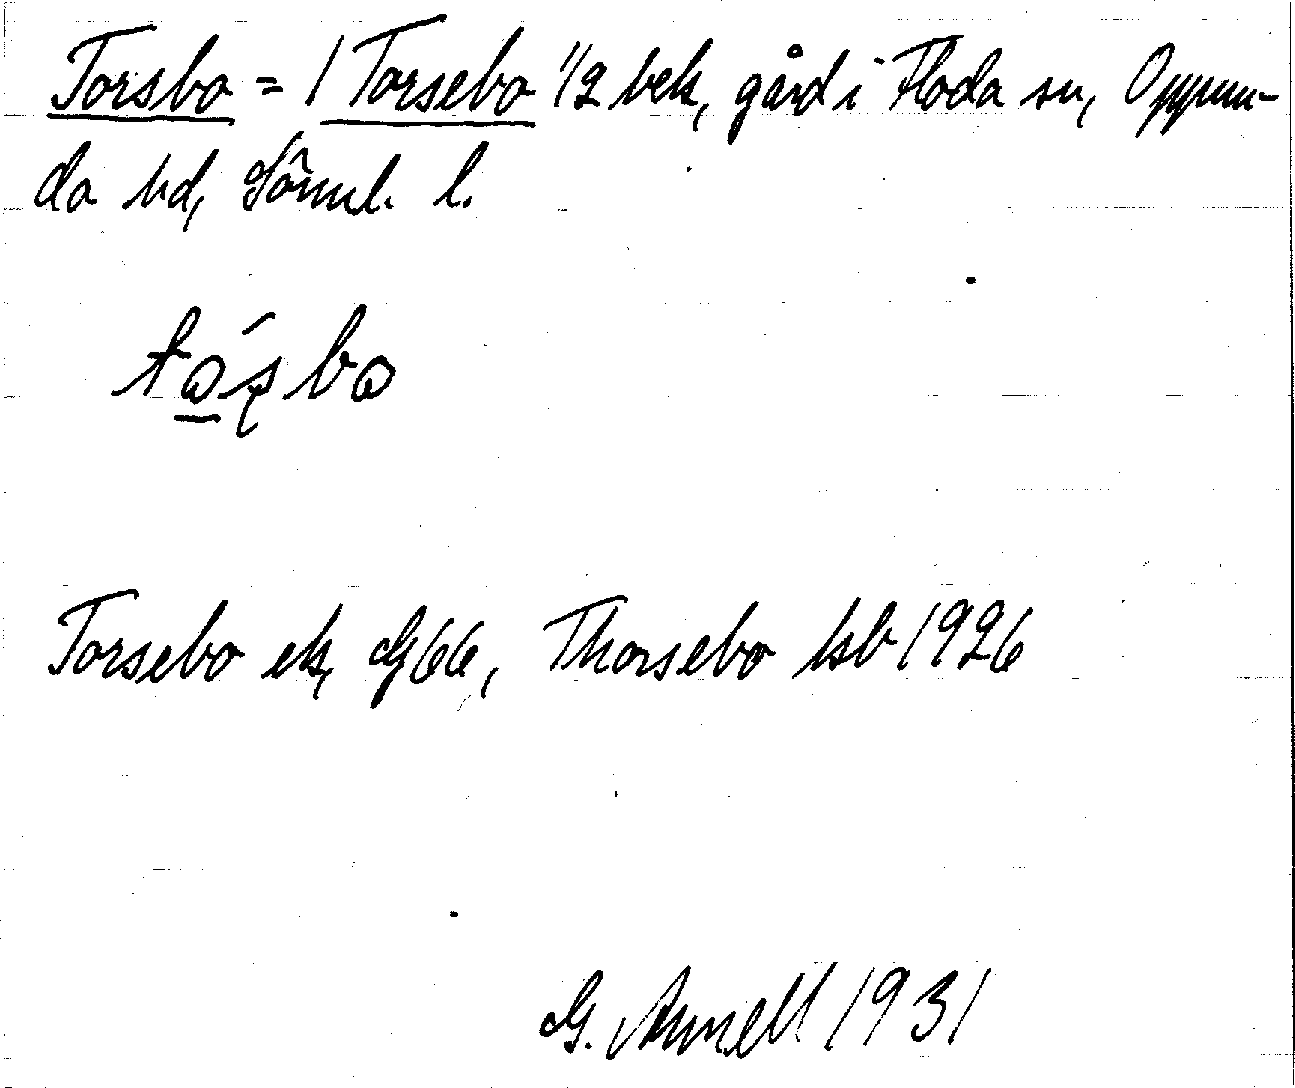 Torsbo = 1 Torsebo 1/2 bek, gård i Floda sn, Oppun-
da hd, Sörml. l.
Torsebo ek, G66, Thorsebo ksb 1926
G. Annell 1931